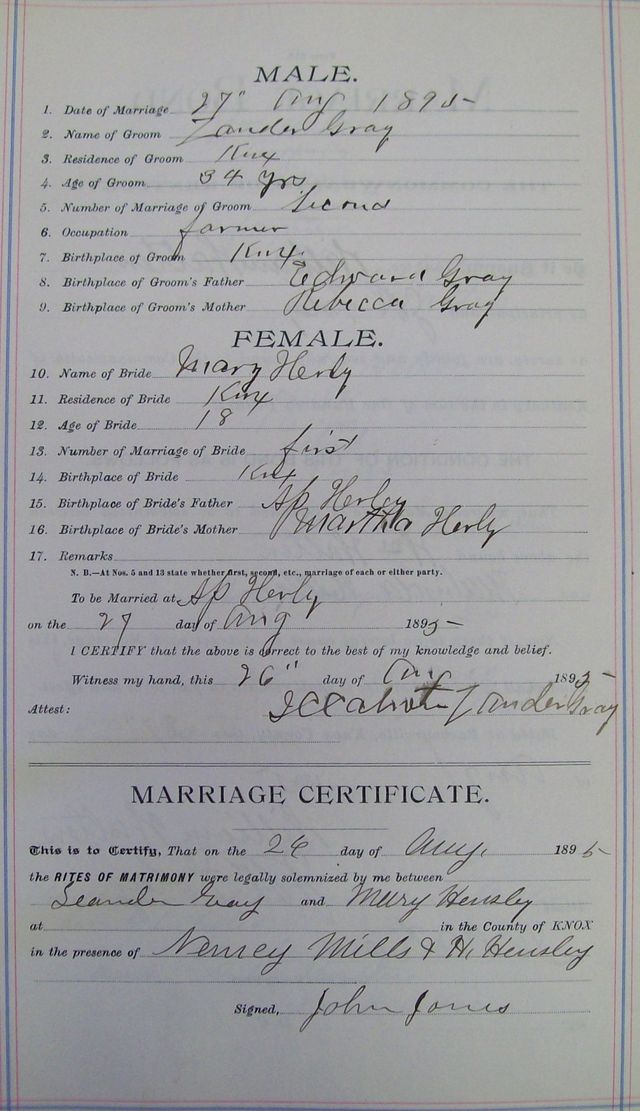 MALE.
1. Date of Marriage 27" Aug 1895
2. Name of Groom Zander Gray
3. Residence of Groom Knx
4. Age of Groom 34 yrs
5. Number of Marriage of Groom Second
6. Occupation farmer
7. Birthplace of Groom Knx
8. Birthplace of Groom's Father Edward Gray
9. Birthplace of Groom's Mother Rebecca Gray
FEMALE.
10. Name of Bride Mary Henly
11. Residence of Bride Knx
12. Age of Bride 18
13. Number of Marriage of Bride first
14. Birthplace of Bride Knx
15. Birthplace of Bride's Father Henley
16. Birthplace of Bride's Mother Martha Henly
17. Remarks
N. B.—At Nos. 5 and 13 state whether first, second, etc., marriage of each or either party.
To be Married at Henly
on the 27 day of Aug 1895
I CERTIFY that the above is correct to the best of my knowledge and belief.
Witness my hand, this 26" day of Aug 1895
Zander Gray
Attest:
MARRIAGE CERTIFICATE.
This is to Certify, That on the 26 day of Aug. 1895
the RITES OF MATRIMONY were legally solemnized by me between
Leander Gray and Mary Hensley
at in the County of KNOX
in the presence of Nancy Mills & H. Hensley
Signed, John Jones